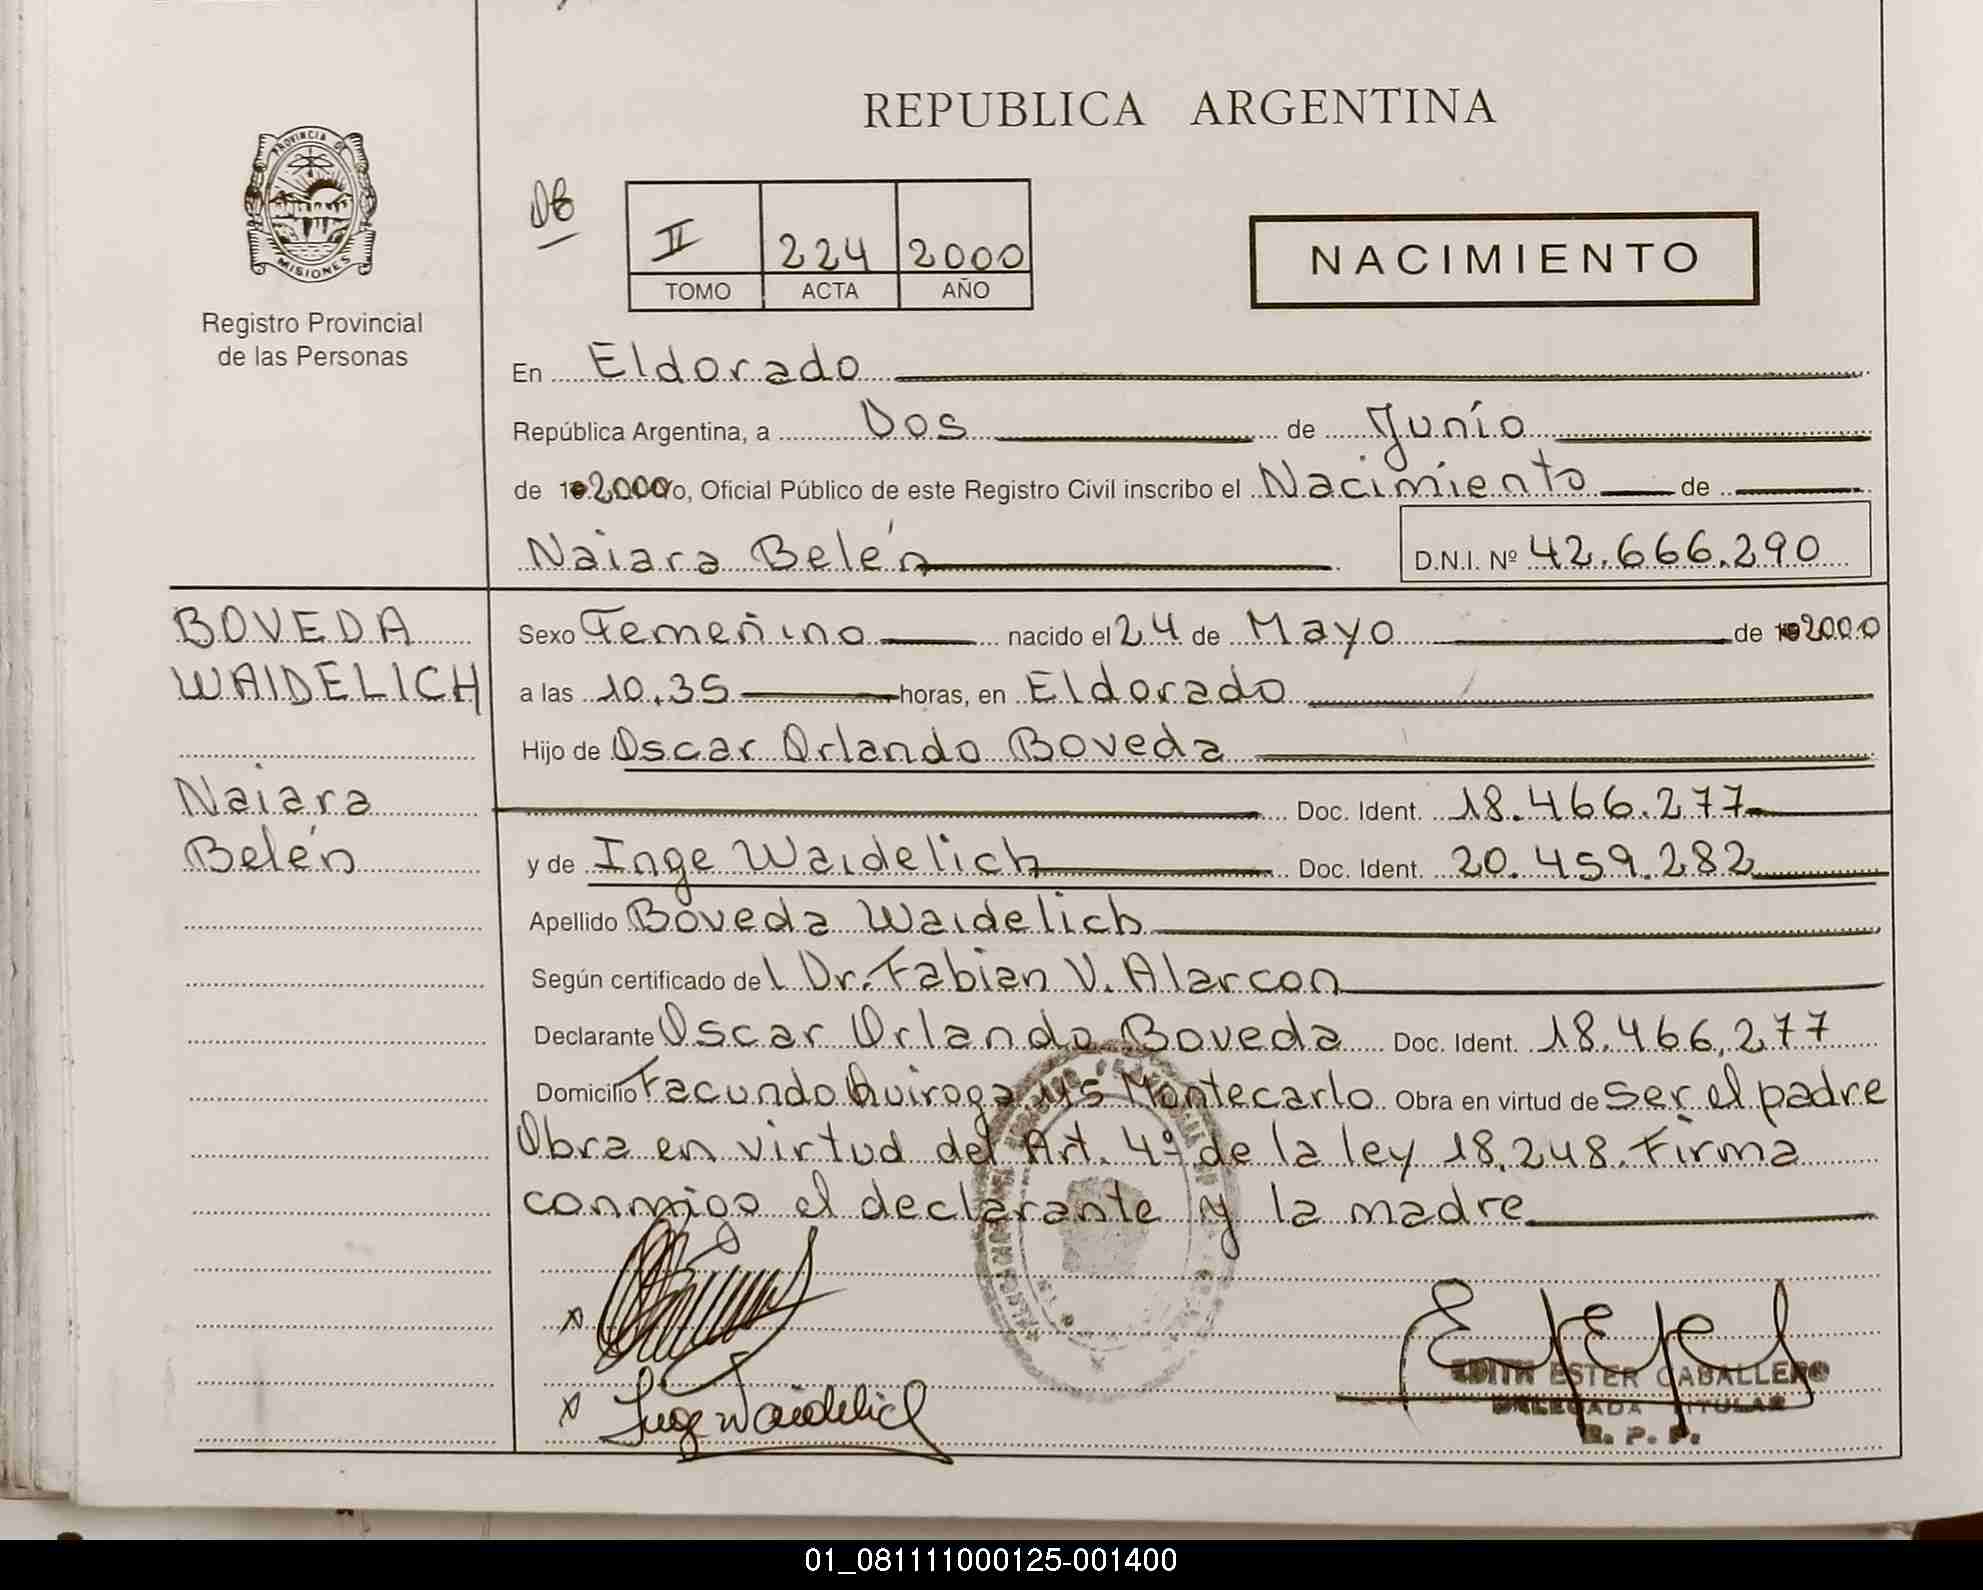 REPUBLICA ARGENTINA
PROVINCIA DE
MISIONES
Registro Provincial
de las Personas
DB
II 224 2000
TOMO ACTA AÑO
NACIMIENTO
En Eldorado
República Argentina, a Dos de Junio
de 2000 yo, Oficial Público de este Registro Civil inscribo el Nacimiento de
Naiara Belén D.N.I. Nº 42.666.290
BOVEDA
WAIDELICH
Naiara
Belén
Sexo Femenino nacido el 24 de Mayo de 2000
a las 10.35 horas, en Eldorado
Hijo de Oscar Orlando Boveda
Doc. Ident. 18.466.277
y de Inge Waidelich Doc. Ident. 20.459.282
Apellido Boveda Waidelich
Según certificado del Dr. Fabian V. Alarcon
Declarante Oscar Orlando Boveda Doc. Ident. 18.466.277
Domicilio Facundo Quiroga 45 Montecarlo Obra en virtud de Ser el padre
Obra en virtud del Art. 4º de la ley 18.248. Firma
conmigo el declarante y la madre
x
x Inge Waidelich
EDITH ESTER CABALLERO
DELEGADA TITULAR
R. P. P.
01_081111000125-001400